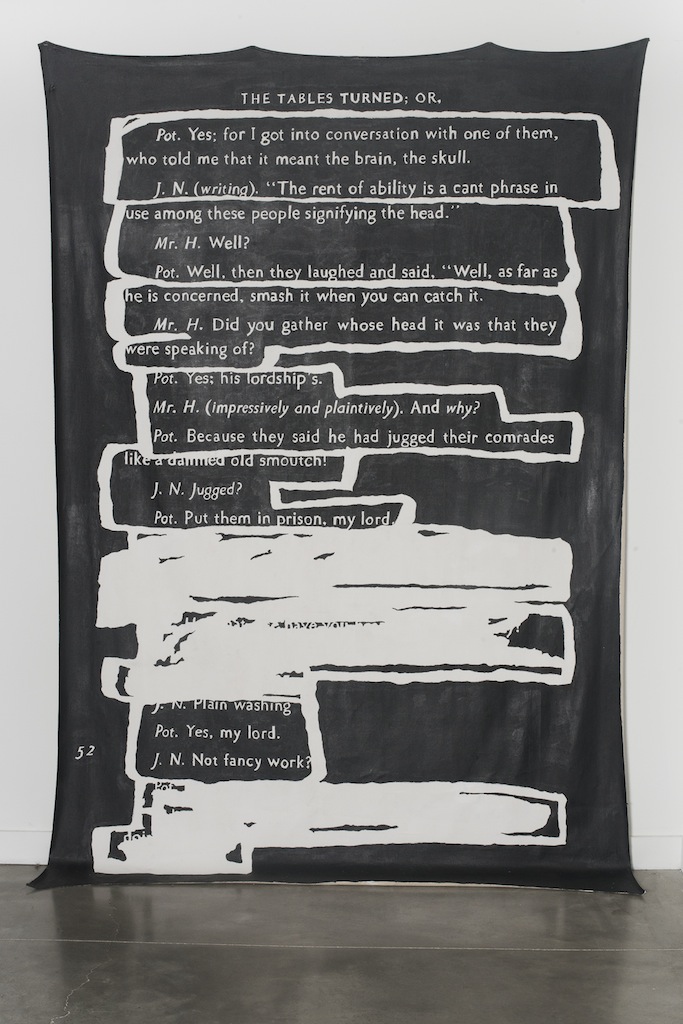 THE TABLES TURNED; OR,
Pot. Yes; for I got into conversation with one of them,
who told me that it meant the brain, the skull.
J. N. (writing). "The rent of ability is a cant phrase in
use among these people signifying the head."
Mr. H. Well?
Pot. Well, then they laughed and said, "Well, as far as
he is concerned, smash it when you can catch it.
Mr. H. Did you gather whose head it was that they
were speaking of?
Pot. Yes; his lordship's.
Mr. H. (impressively and plaintively). And why?
Pot. Because they said he had jugged their comrades
like a damned old smoutch!
J. N. Jugged?
Pot. Put them in prison, my lord.
have you
J. N. Plain washing
Pot. Yes, my lord.
J. N. Not fancy work?
52